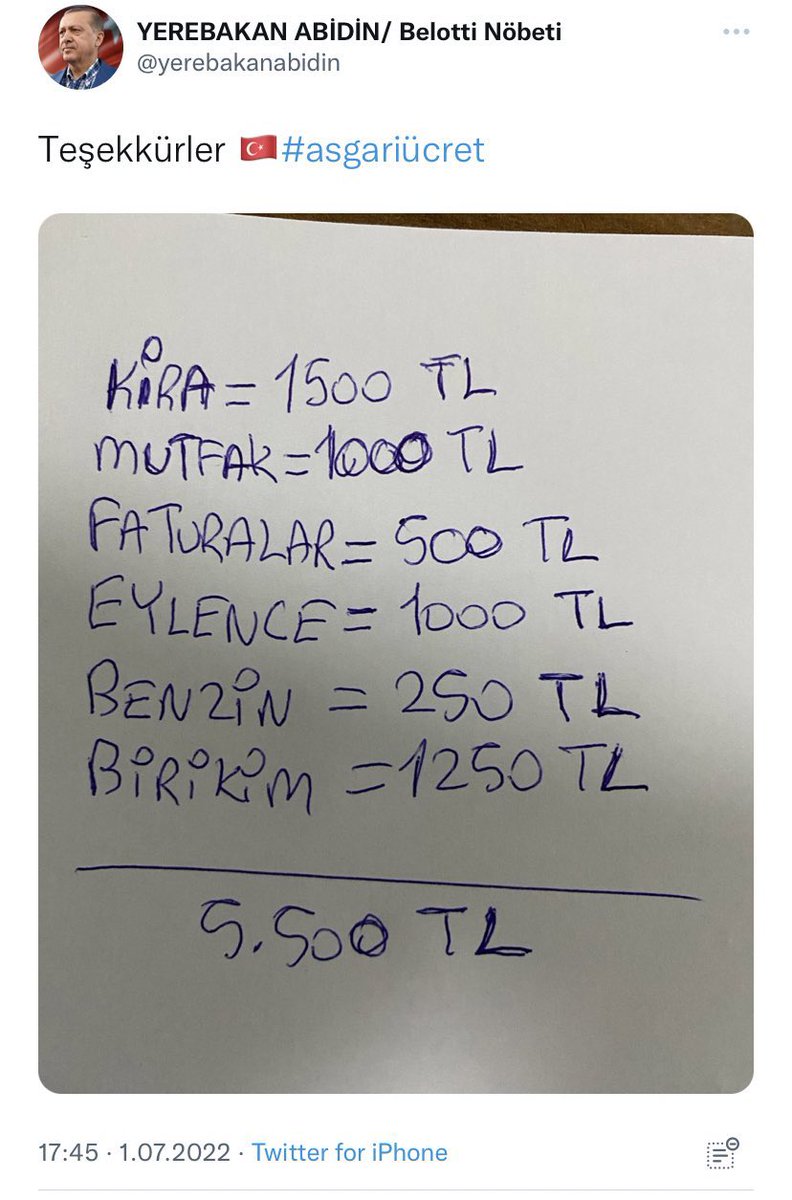 YEREBAKAN ABİDİN/ Belotti Nöbeti
@yerebakanabidin
Teşekkürler 🇹🇷 #asgariücret
KİRA = 1500 TL
MUTFAK = 1000 TL
FATURALAR = 500 TL
EYLENCE = 1000 TL
BENZİN = 250 TL
BİRİKİM = 1250 TL
5.500 TL
17:45 · 1.07.2022 · Twitter for iPhone